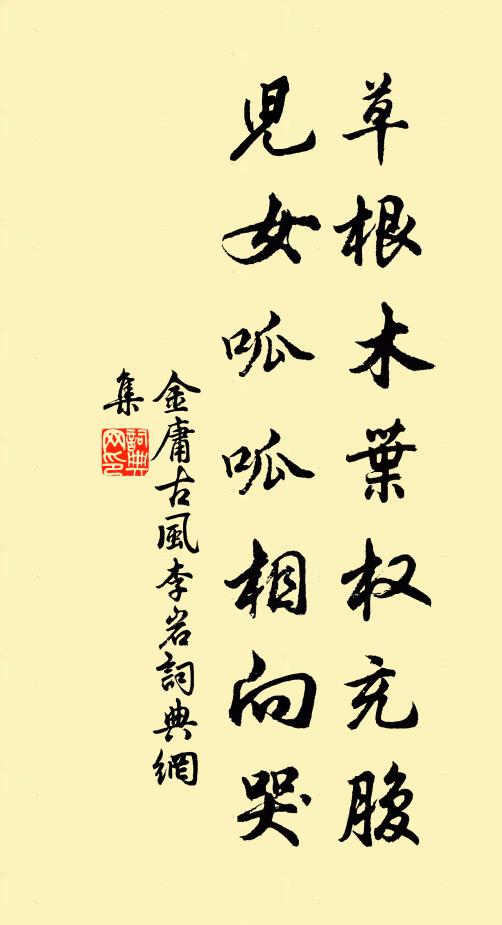 草根木葉权充腹
児女呱呱相向哭
金庸古風李岩詞典網
集
詞典网印